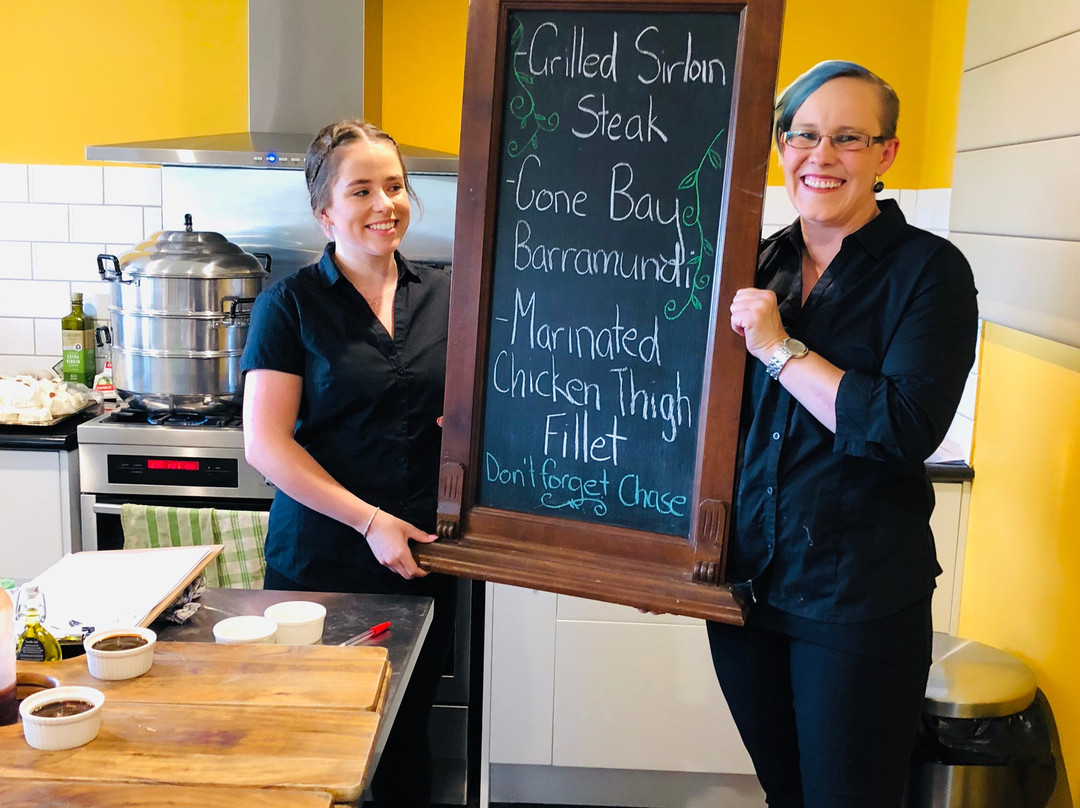 -Grilled Sirloin
Steak
-Cone Bay
Barramundi
-Marinated
Chicken Thigh
Fillet
Don't forget Chase
EXTRA
VIRGIN